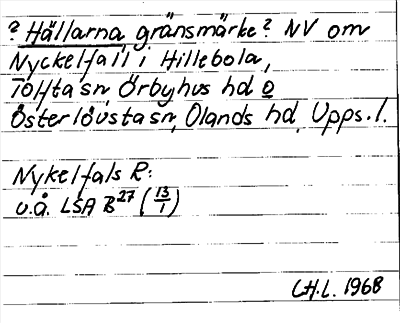 ? Hällarna gränsmärke? NV om
Nyckelfall i Hillebola,
Tolfta sn, Örbyhus hd o
Österlövsta sn, Olands hd, Upps.l.
Nykelfals R:
u.å. LSA B27 (13/1)
C.H.L. 1968